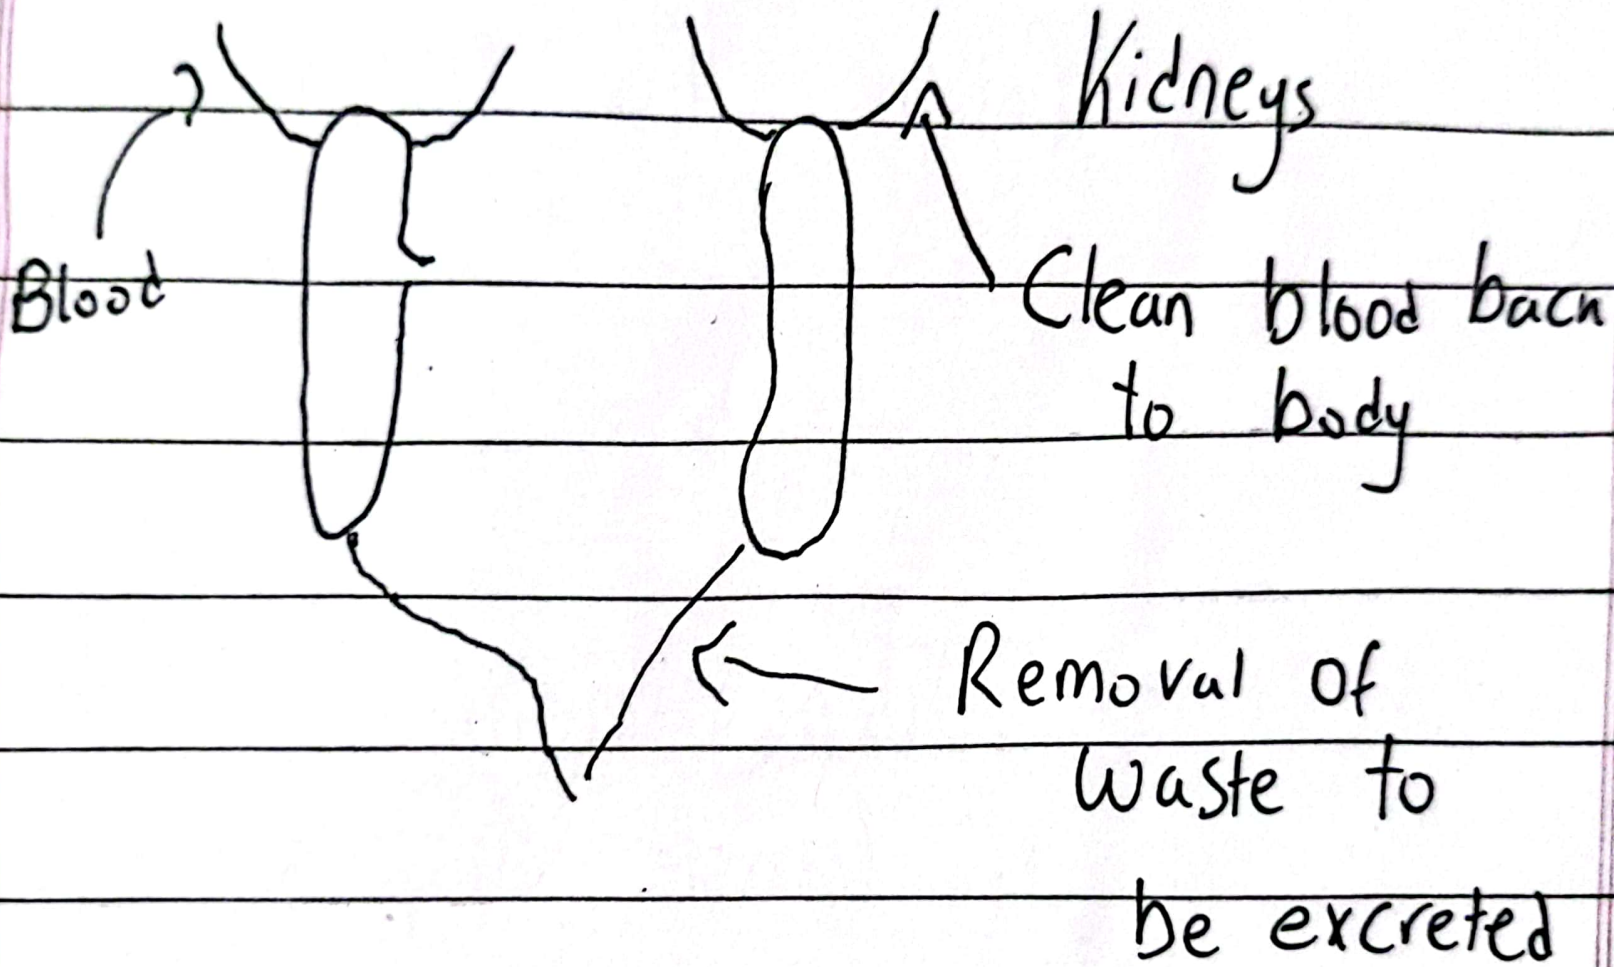 Kidneys
Blood
Clean blood back
to body
Removal of
waste to
be excreted